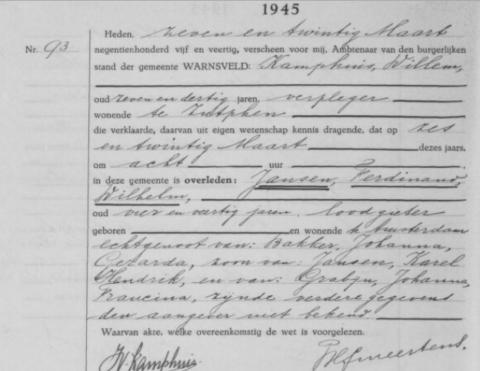 1945
Heden, zeven en twintig Maart
Nr. 93
negentienhonderd vijf en veertig, verscheen voor mij, Ambtenaar van den burgerlijken
stand der gemeente WARNSVELD: Kamphuis, Willem,
oud zeven en dertig jaren, verpleger
wonende te Zutphen
die verklaarde, daarvan uit eigen wetenschap kennis dragende, dat op zes
en twintig Maart dezes jaars,
om acht uur
in deze gemeente is overleden: Jansen, Ferdinand,
Wilhelm,
oud vier en veertig jaren, loodgieter
geboren en wonende te Amsterdam
echtgenoot van: Bakker, Johanna,
Gerarda, zoon van: Jansen, Karel
Hendrik, en van: Johanna
Francina, zijnde verdere gegevens
den aangever niet bekend.
Waarvan akte, welke overeenkomstig de wet is voorgelezen.
W. Kamphuis.